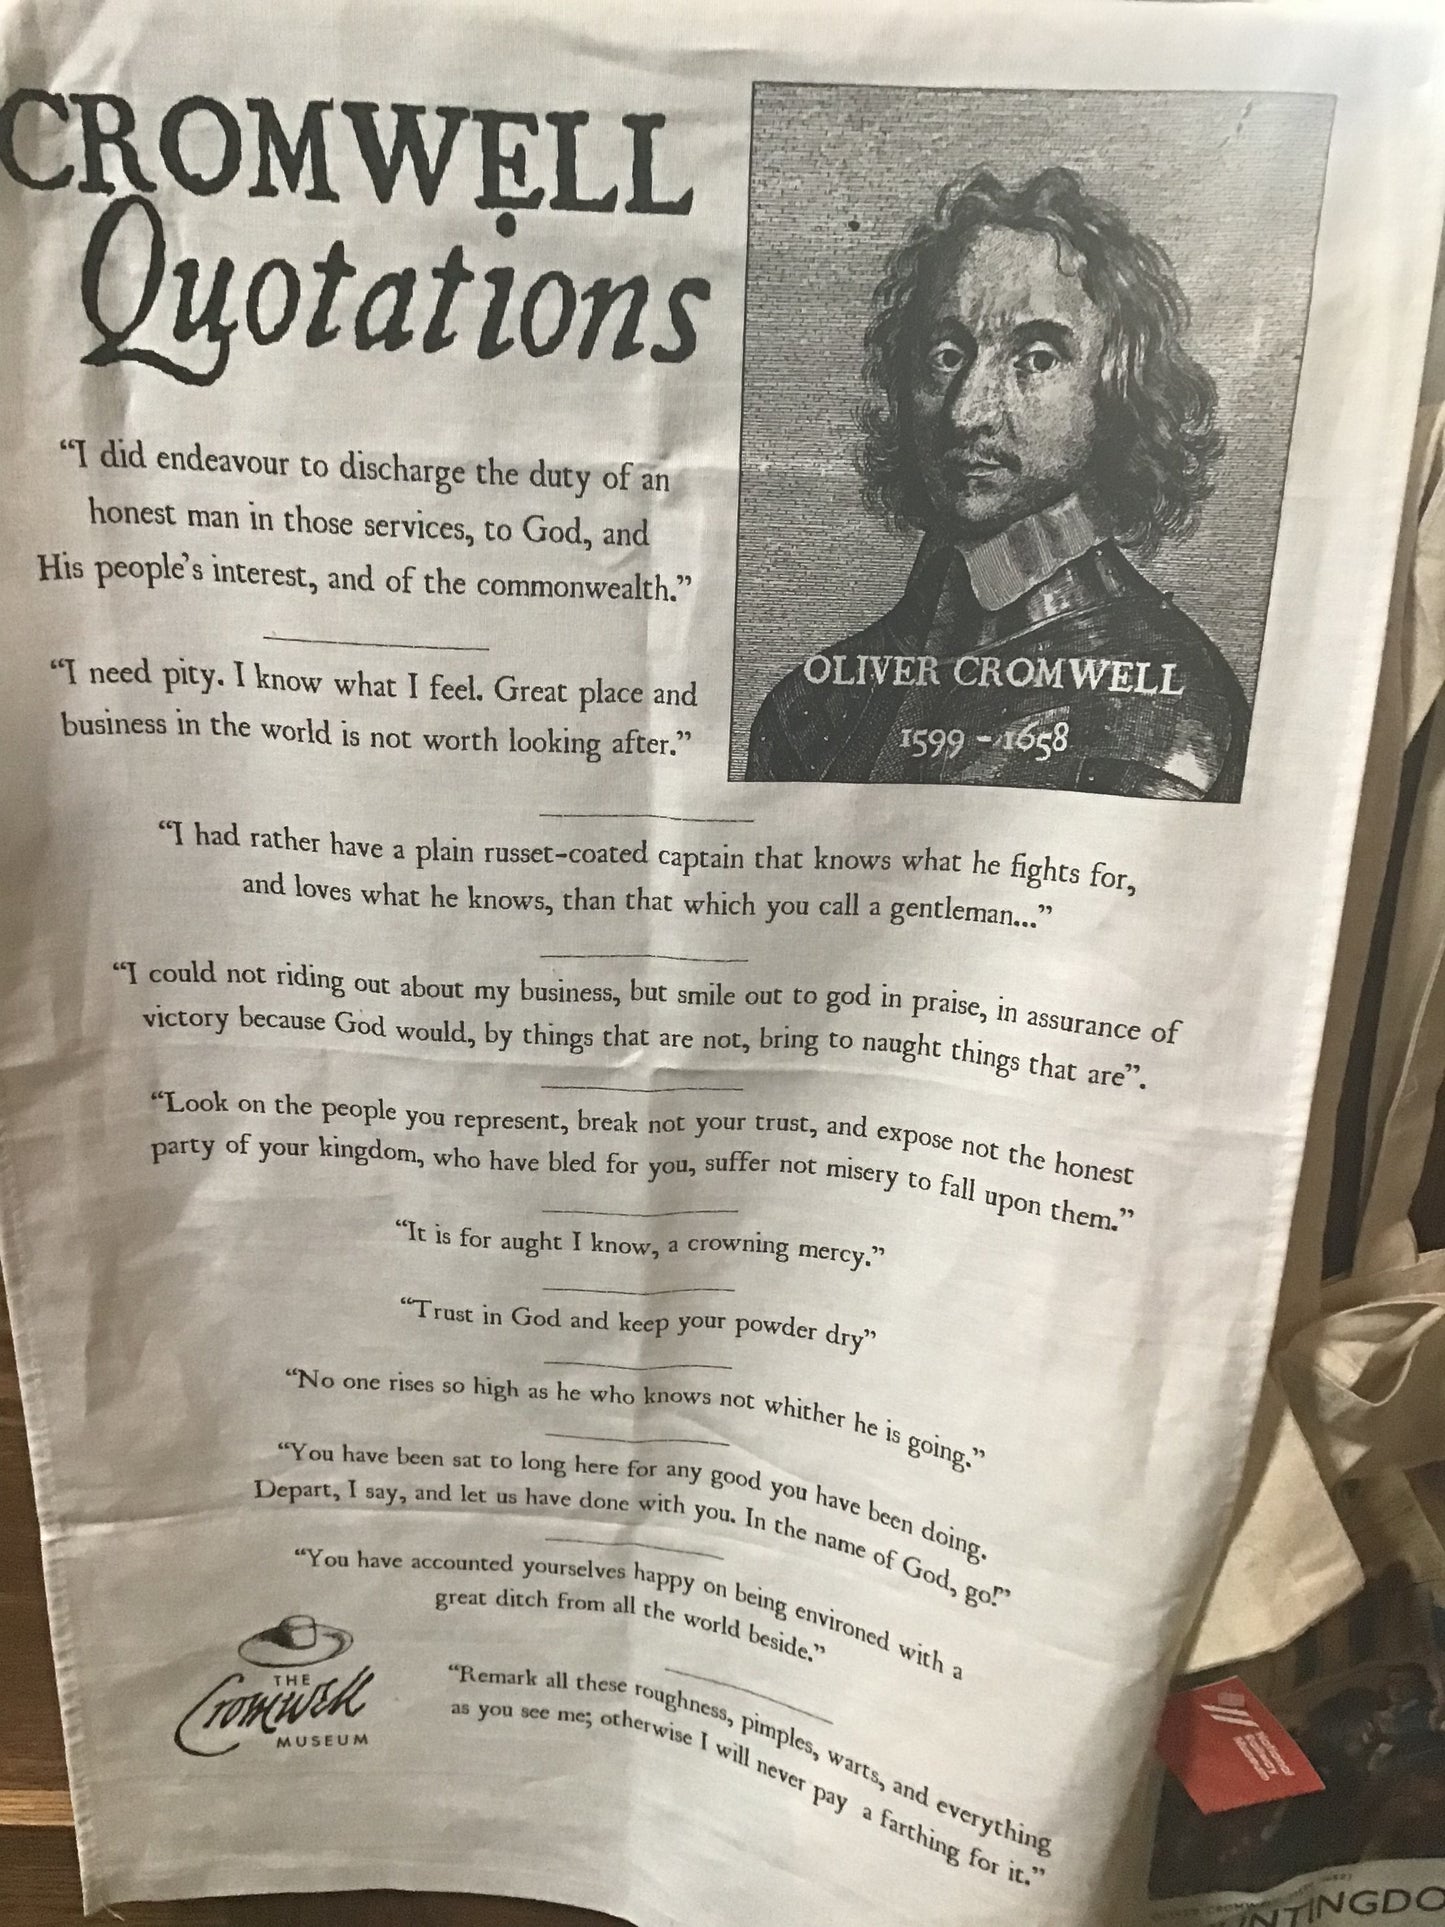 CROMWELL
Quotations
“I did endeavour to discharge the duty of an
honest man in those services, to God, and
His people's interest, and of the commonwealth.”
“I need pity. I know what I feel. Great place and
business in the world is not worth looking after.”
OLIVER CROMWELL
1599 - 1658
“I had rather have a plain russet-coated captain that knows what he fights for,
and loves what he knows, than that which you call a gentleman...”
“I could not riding out about my business, but smile out to god in praise, in assurance of
victory because God would, by things that are not, bring to naught things that are”.
“Look on the people you represent, break not your trust, and expose not the honest
party of your kingdom, who have bled for you, suffer not misery to fall upon them.”
“It is for aught I know, a crowning mercy.”
“Trust in God and keep your powder dry”
“No one rises so high as he who knows not whither he is going.”
“You have been sat to long here for any good you have been doing.
Depart, I say, and let us have done with you. In the name of God, go!”
“You have accounted yourselves happy on being environed with a
great ditch from all the world beside.”
“Remark all these roughness, pimples, warts, and everything
as you see me; otherwise I will never pay a farthing for it.”
THE
Cromwell
MUSEUM
OLIVER CROMWELL
NTINGDO